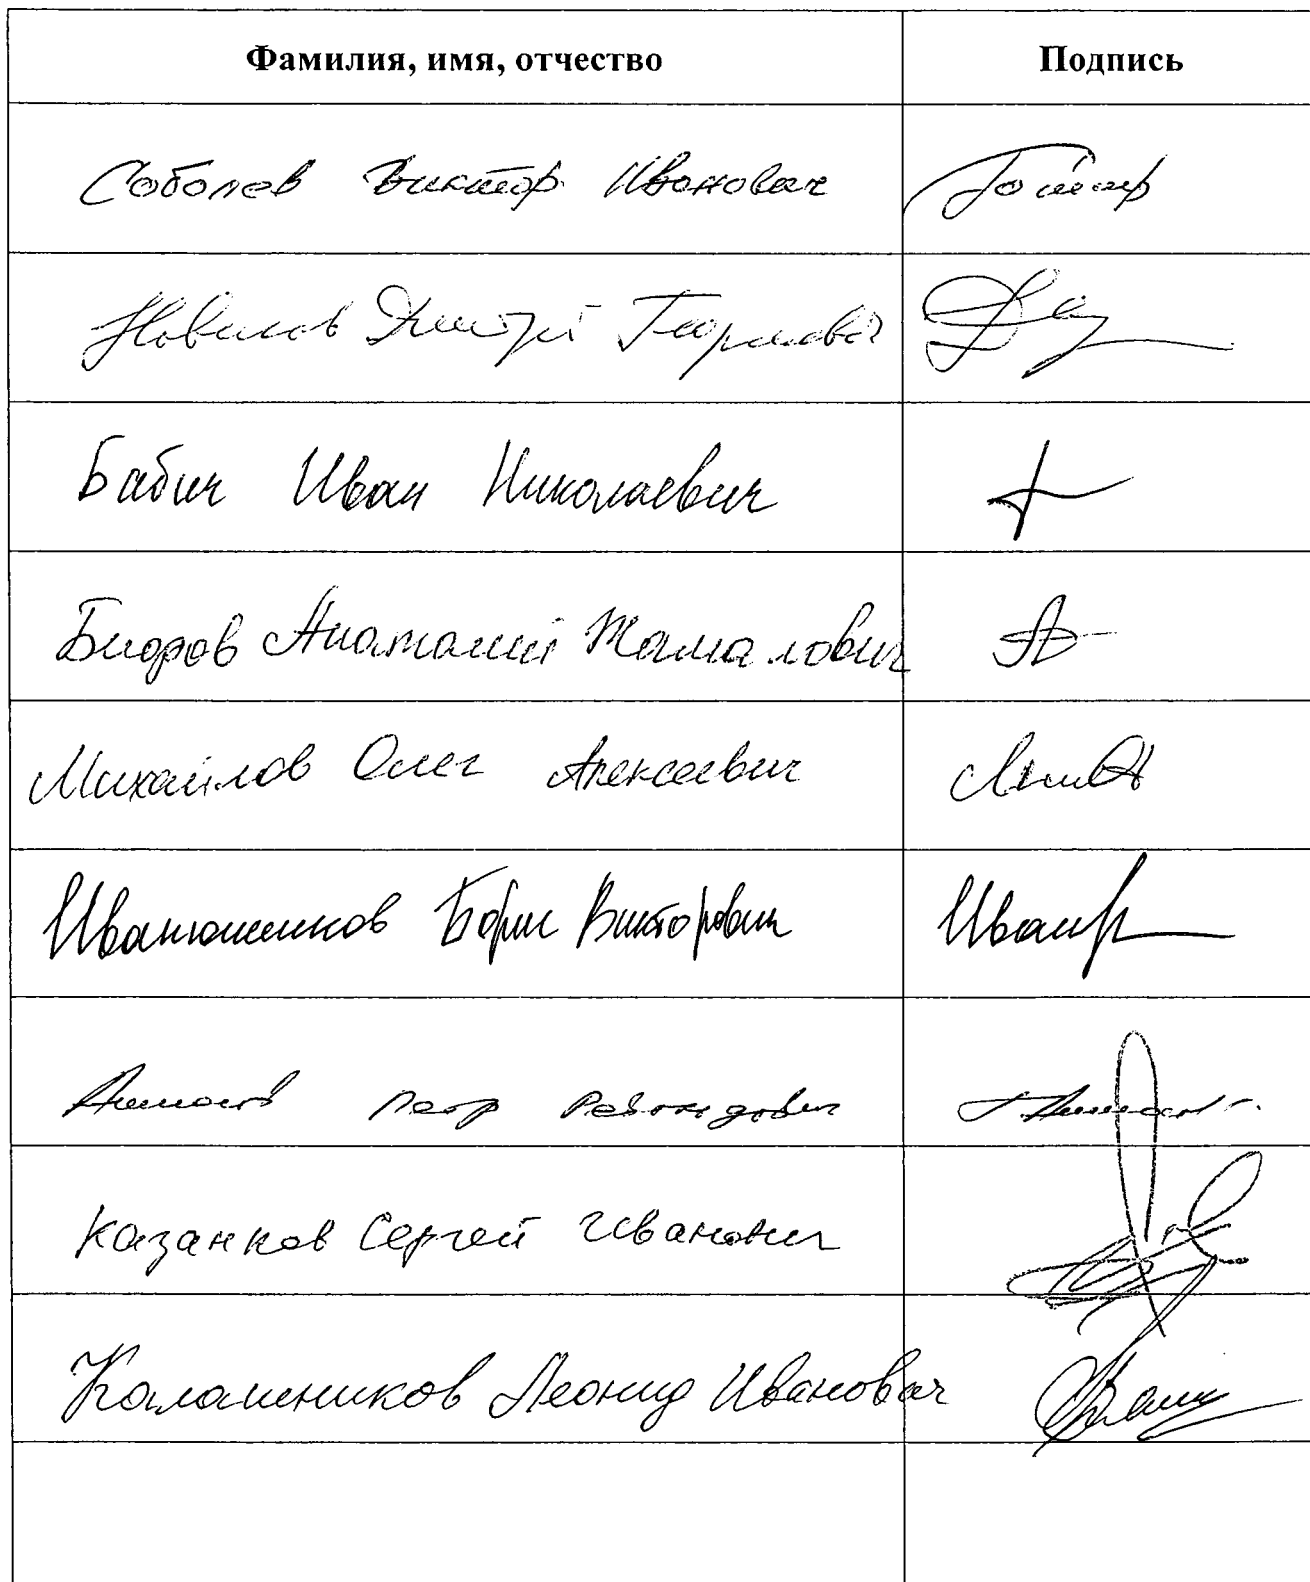 Фамилия, имя, отчество Подпись
Соболев Виктор Иванович
Новиков Дмитрий Георгиевич
Бабич Иван Николаевич
Бифов Анатолий Жамалович
Михайлов Олег Алексеевич
Иванюженков Борис Викторович
Аммосов Петр Револдович
Казанков Сергей Иванович
Калашников Леонид Иванович